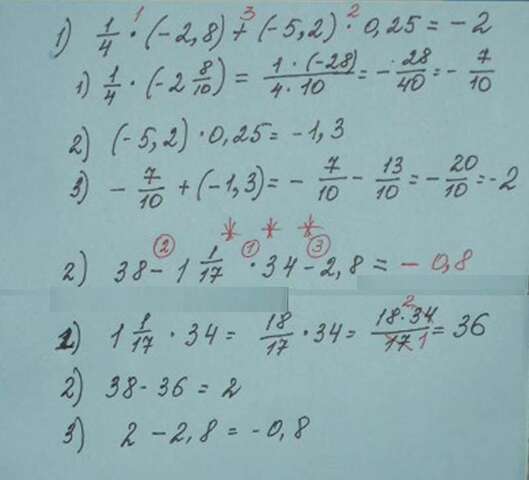 1) 1/4 · (-2,8) + (-5,2) · 0,25 = -2
1 3 2
1) 1/4 · (-2 8/10) = 1 · (-28)/4 · 10 = - 28/40 = - 7/10
2) (-5,2) · 0,25 = -1,3
3) - 7/10 + (-1,3) = - 7/10 - 13/10 = - 20/10 = -2
* * *
② ① ③
2) 38 - 1 1/17 · 34 - 2,8 = - 0,8
1) 1 1/17 · 34 = 18/17 · 34 = 18 · 34/17 = 36
2 1
2) 38 - 36 = 2
3) 2 - 2,8 = -0,8